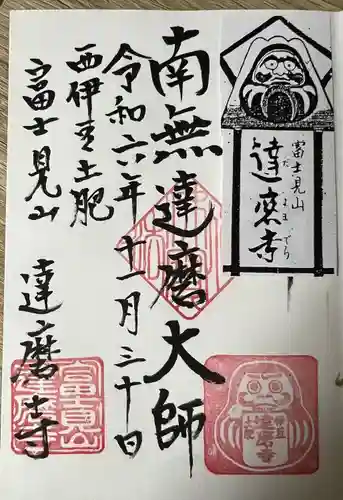 富士見山
達磨寺
だるまでら
南無達磨大師
令和六年十一月三十日
西伊豆土肥
富士見山 達磨寺
富士見山
達磨寺
達磨寺